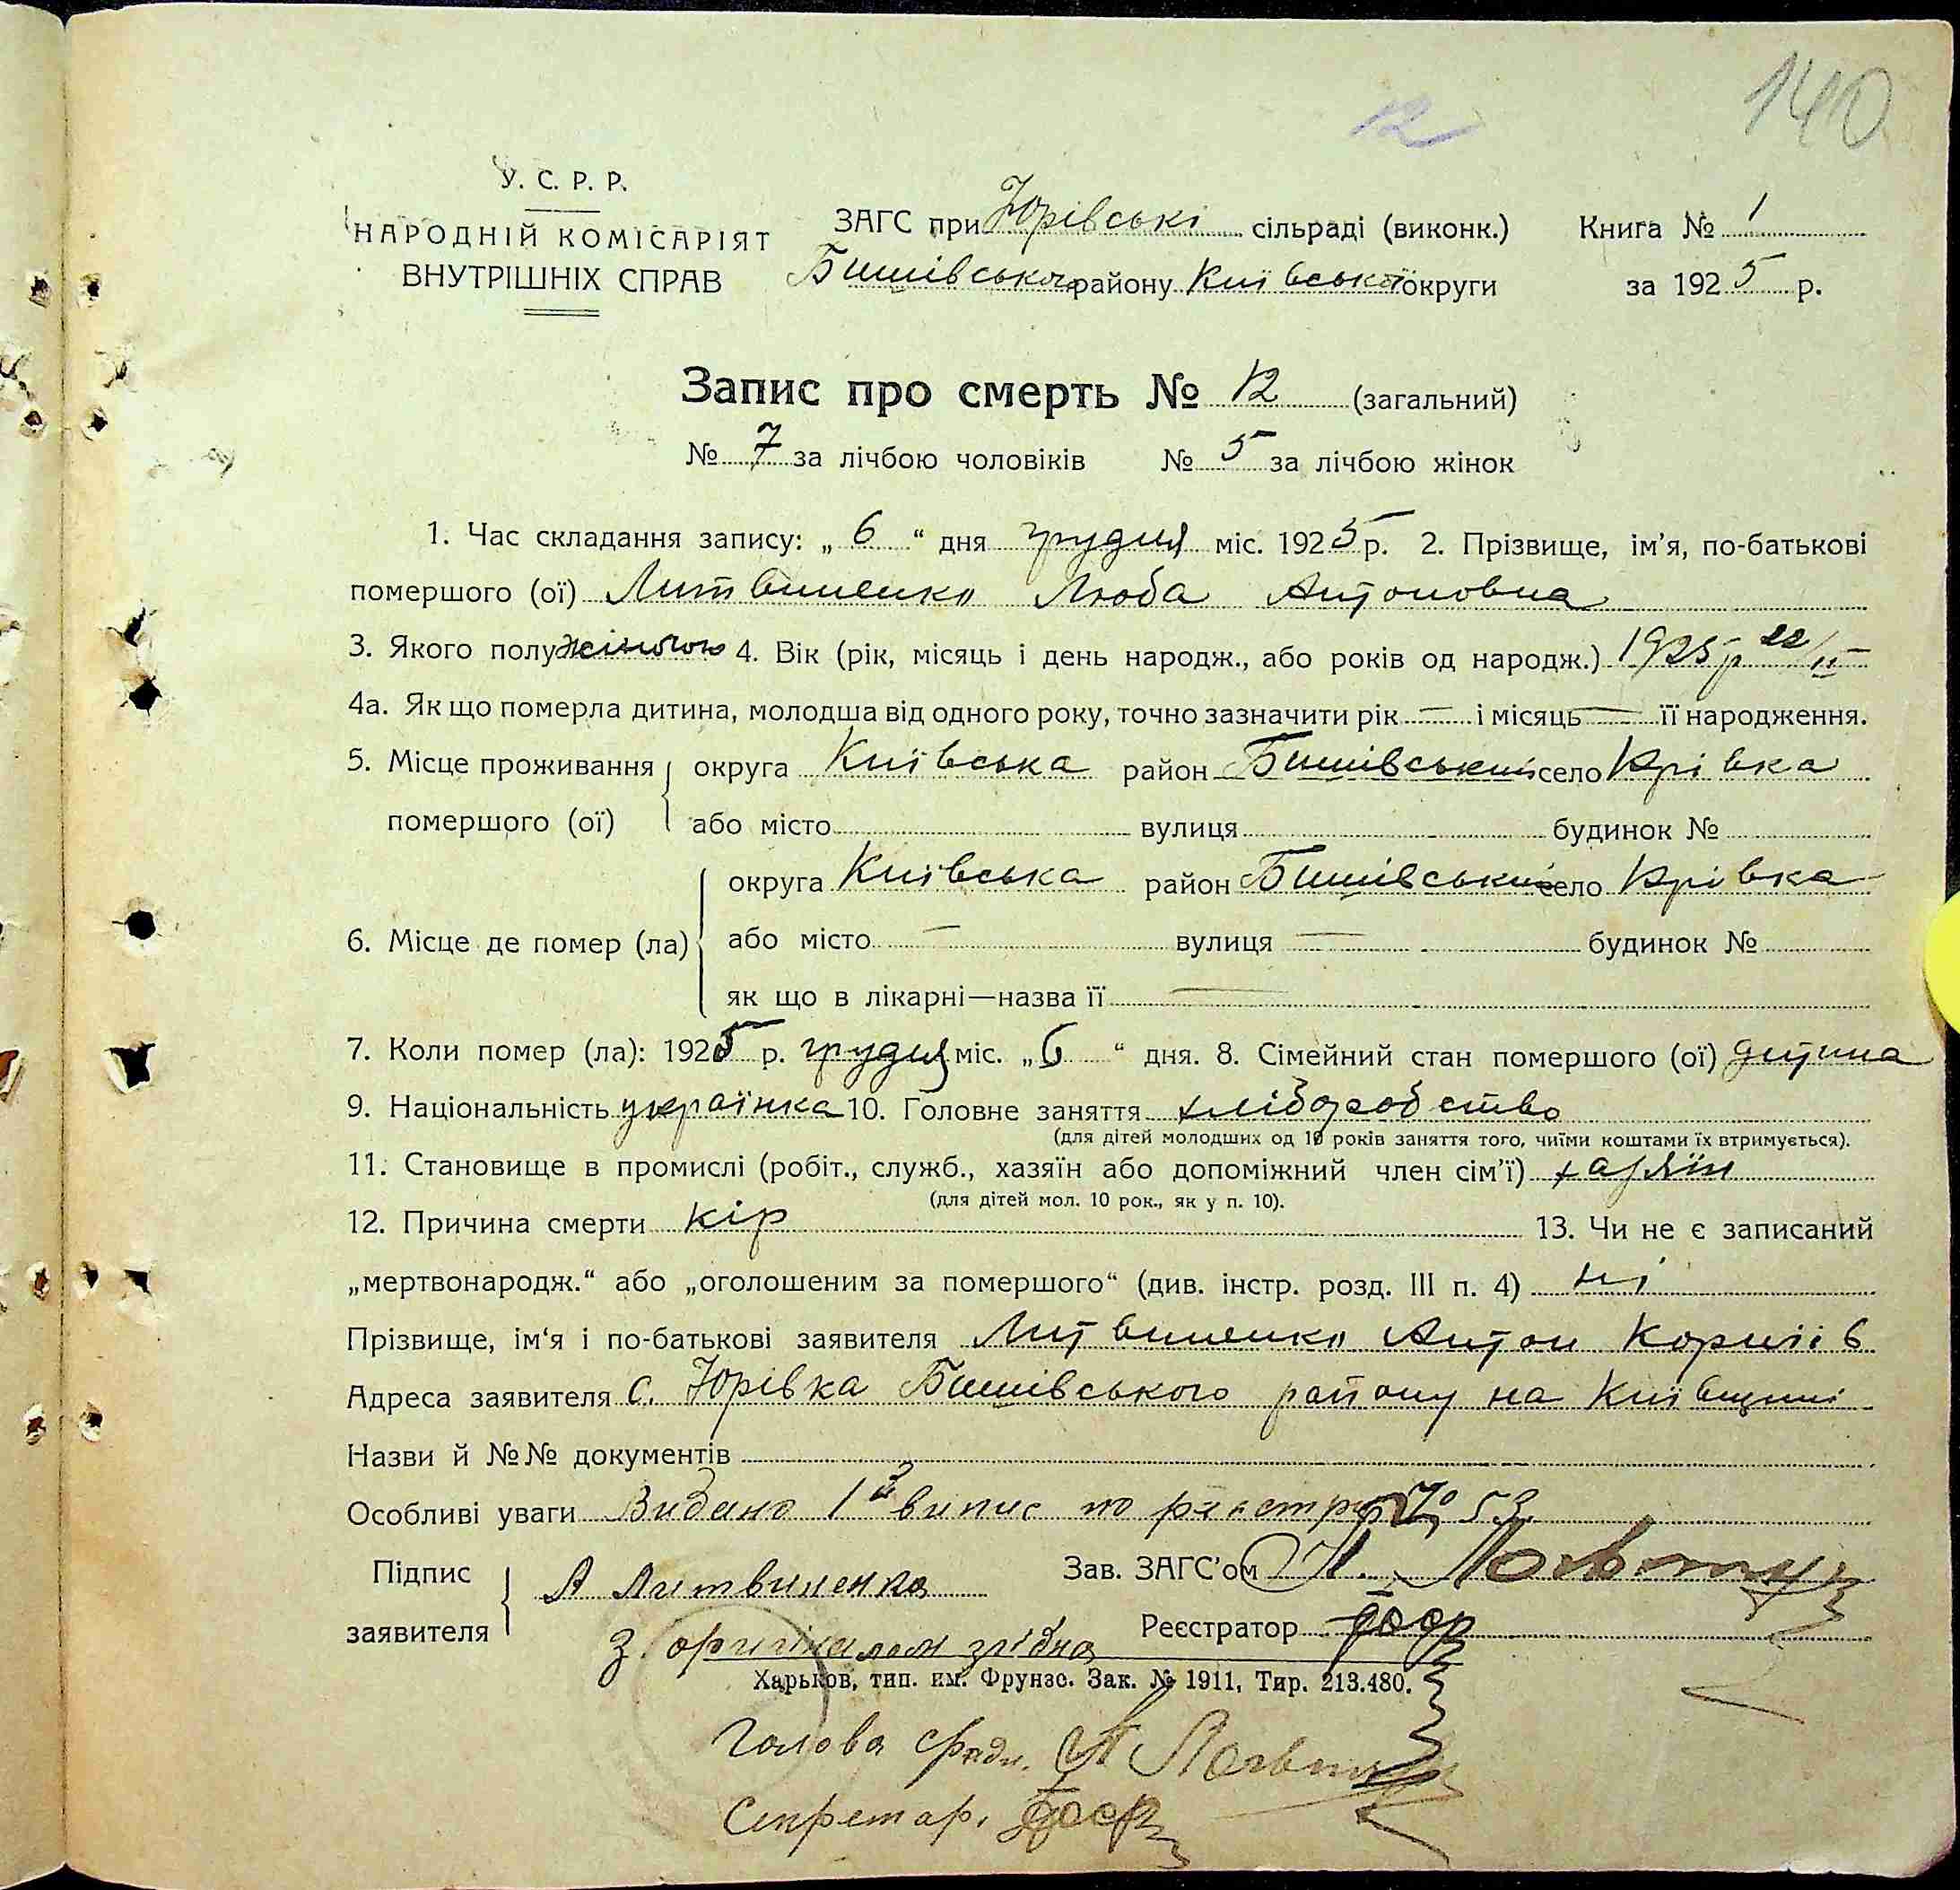 140
12
У. С. Р. Р.
НАРОДНІЙ КОМІСАРІЯТ
ВНУТРІШНІХ СПРАВ
ЗАГС при Юрівські сільраді (виконк.) Книга № 1
Бишівського району Київської округи за 1925 р.
Запис про смерть № 12 (загальний)
№ 7 за лічбою чоловіків № 5 за лічбою жінок
1. Час складання запису: „ 6 “ дня грудня міс. 1925 р. 2. Прізвище, ім'я, по-батькові
помершого (ої) Литвиненко Люба Антоновна
3. Якого полу жіночого 4. Вік (рік, місяць і день народж., або років од народж.) 1925 р 22/II
4а. Як що померла дитина, молодша від одного року, точно зазначити рік — і місяць — її народження.
5. Місце проживання помершого (ої) округа Київська район Бишівський село Юрівка
або місто вулиця будинок №
6. Місце де помер (ла) округа Київська район Бишівський село Юрівка
або місто — вулиця — будинок №
як що в лікарні—назва її —
7. Коли помер (ла): 1925 р. грудня міс. „ 6 “ дня. 8. Сімейний стан помершого (ої) дитина
9. Національність українка 10. Головне заняття хліборобство
(для дітей молодших од 10 років заняття того, чиїми коштами їх втримується).
11. Становище в промислі (робіт., служб., хазяїн або допоміжний член сім'ї) хазяїн
(для дітей мол. 10 рок., як у п. 10).
12. Причина смерти кір 13. Чи не є записаний
„мертвонародж.“ або „оголошеним за помершого“ (див. інстр. розд. III п. 4) ні
Прізвище, ім‘я і по-батькові заявителя Литвиненко Антон Корніїв
Адреса заявителя с. Юрівка Бишівського району на Київщині
Назви й №№ документів
Особливі уваги Видано 1 випис по реєстру № 53
Підпис заявителя А Литвиненко Зав. ЗАГС'ом
Реєстратор
З оригіналом згідно
Харьков, тип. им. Фрунзе. Зак. № 1911, Тир. 213.480.
Голова с/ради.
Секретар.